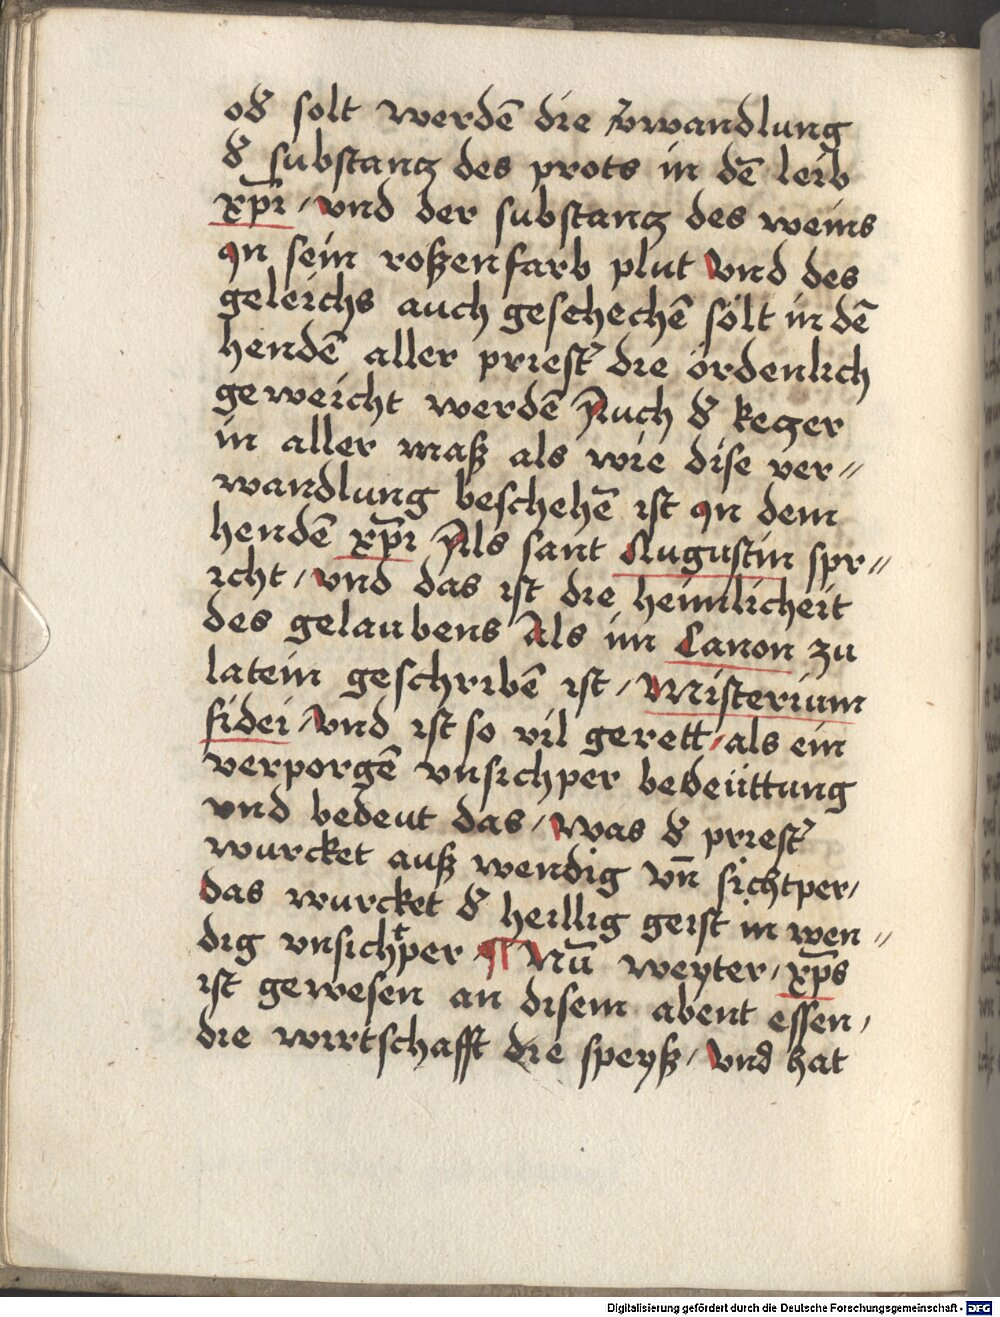 od̄ solt werdē die v̄wandlung
d̄ substanz des prots in dē leib
xp̄i / vnd der substanz des weins
jn sein roßenfarb plut Vnd des
geleichs auch geschechē sölt in dē
hendē aller priest̄ die ördenlich
geweicht werdē Auch d̄ kezer
in aller maß als wie dise ver〃
wandlung beschehē ist jn dem
hendē xp̄i Als sant Augustin spr〃
icht / vnd das ist die heimlicheit
des gelaubens Als im Canon zu
latein geschribē ist / Misterium
fidei / Vnd ist so vil gerett / als ein
verporgē vnsichper bedeüttung
vnd bedeut das / Was d̄ priest̄
wurcket auß wendig vn̄ sichtper /
das wurcket d̄ heillig geist in wen〃
dig vnsichtper ¶ Nū weyter / xp̄s
ist gewesen an disem abent essen /
die wirtschafft die speyß / Vnd hat
Digitalisierung gefördert durch die Deutsche Forschungsgemeinschaft - DFG